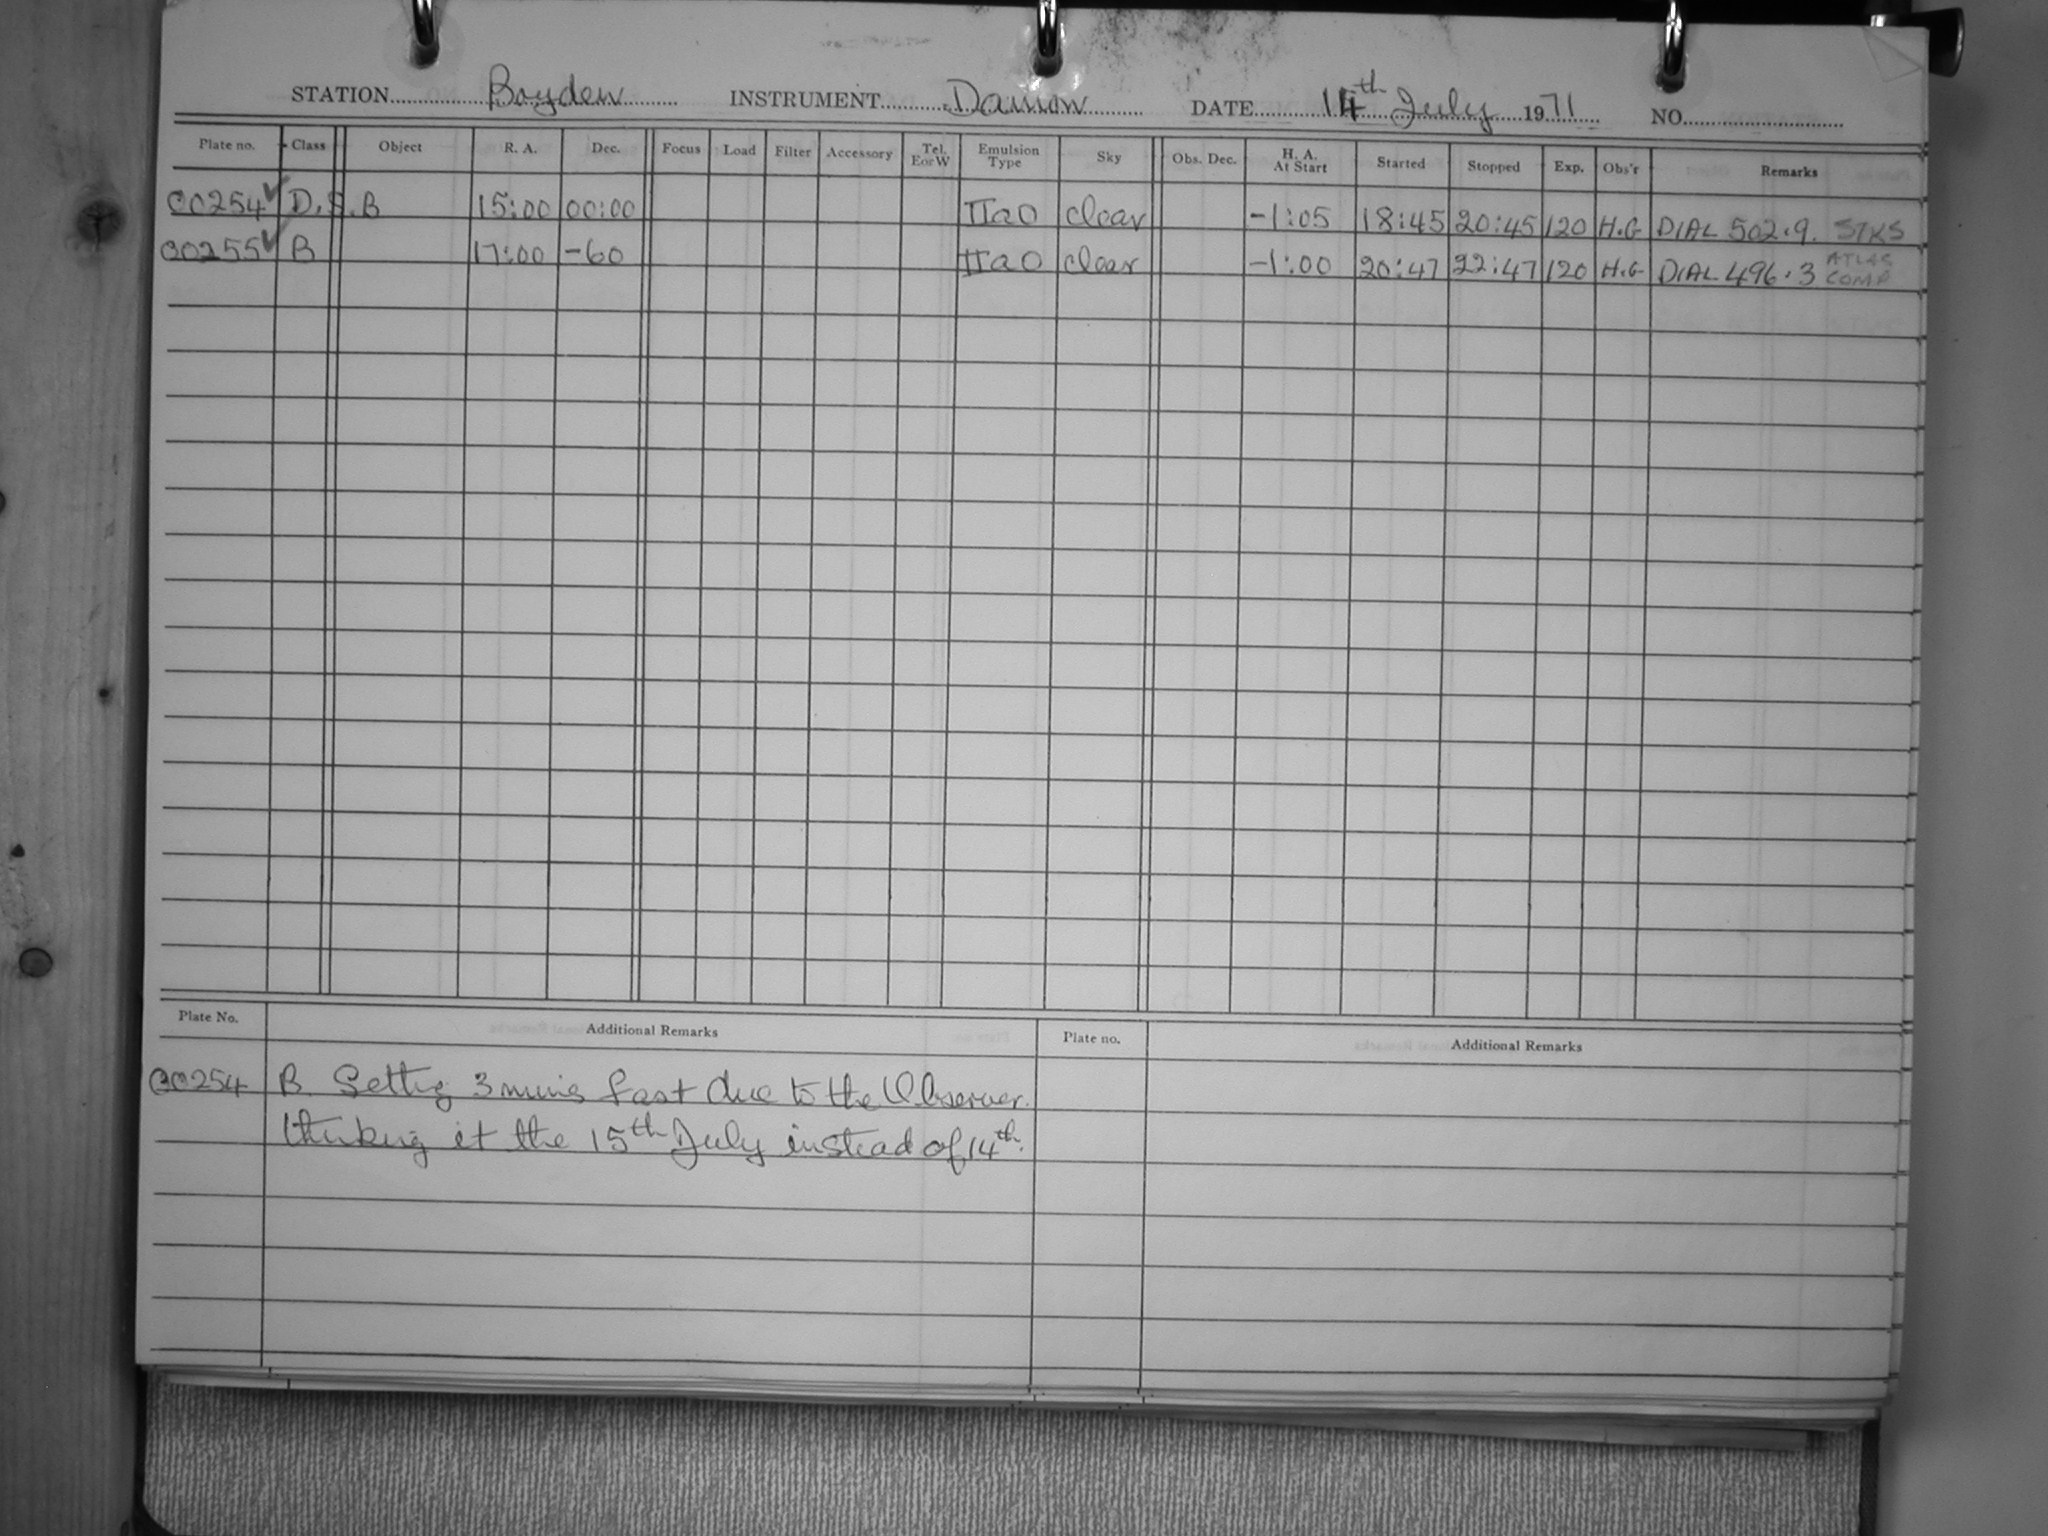 STATION Boyden INSTRUMENT Damon DATE 14th July 1971 NO.
Plate no. Class Object R. A. Dec. Focus Load Filter Accessory Tel. E or W Emulsion Type Sky Obs. Dec. H. A. At Start Started Stopped Exp. Obs'r Remarks
00254 ✓ D.S.B 15:00 00:00 IIaO clear -1:05 18:45 20:45 120 H.G DIAL 502.9. STKS
00255 ✓ B 17:00 -60 IIaO clear -1:00 20:47 22:47 120 H.G DIAL 496.3 ATLAS COMP
Plate No. Additional Remarks Plate no. Additional Remarks
00254 B. Setting 3 mins fast due to the Observer
thinking it the 15th July instead of 14th.